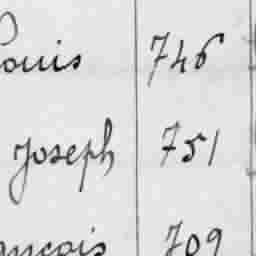 Louis 746
Joseph 751
ançois 709